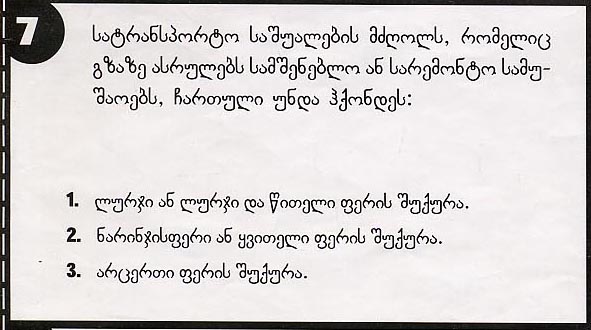 7
სატრანსპორტო საშუალების მძღოლს, რომელიც
გზაზე ასრულებს სამშენებლო ან სარემონტო სამუ-
შაოებს, ჩართული უნდა ჰქონდეს:
1. ლურჯი ან ლურჯი და წითელი ფერის შუქურა.
2. ნარინჯისფერი ან ყვითელი ფერის შუქურა.
3. არცერთი ფერის შუქურა.